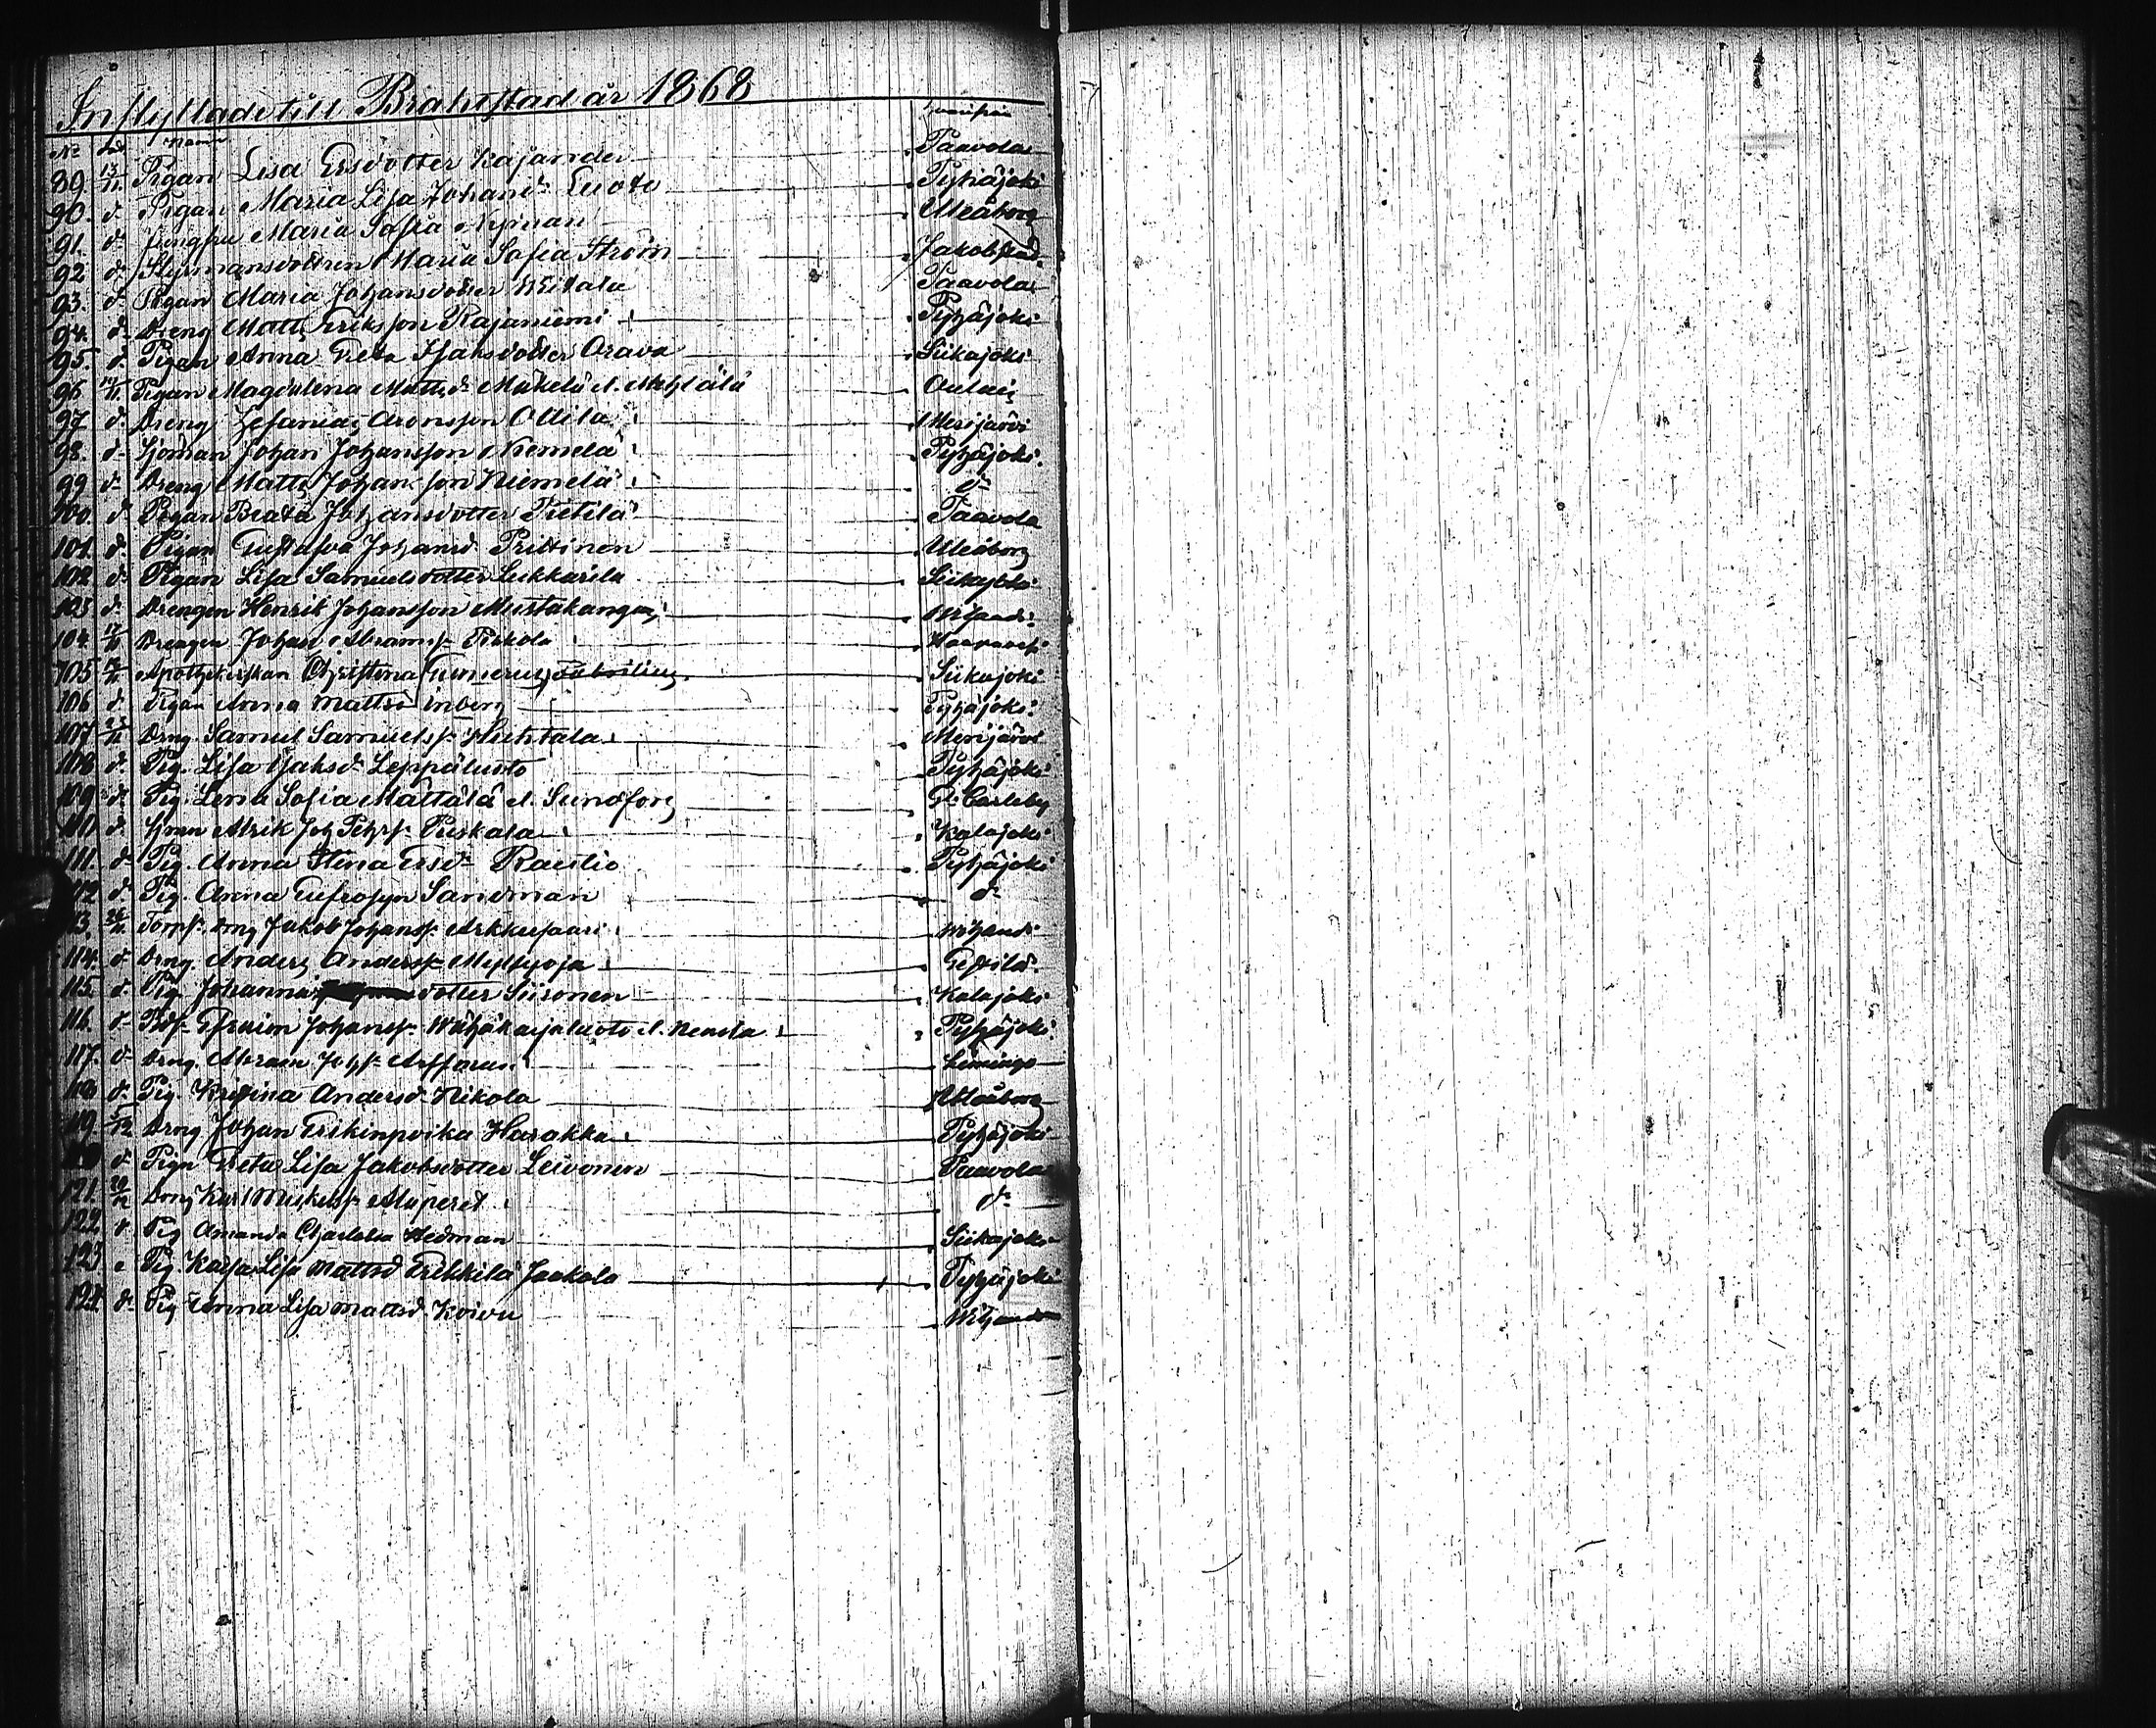 Inflyttade till Brahestad år 1868
No Dat. Namn hvarifrån
89. 13/11. Pigan Lisa Ersdotter Kajander Paavola
90. do Pigan Maria Lisa Johansd. Luoto Pyhäjoki
91. do Jungfru Maria Sofia Nyman Uleåborg
92 do Styrmansdottren Maria Sofia Ström Jakobstad.
93. do Pigan Maria Johansdotter Heitala Paavola
94. do Dreng Matts Eriksson Rajaniemi Pyhäjoki
95. do Pigan Anna Greta Isaksdotter Orava Siikajoki
96 Pigan Magdalena Mattsd. Mäkelä l. Mehtälä Oulais
97 do Dreng Zefanias Aronsson Ollila Merijärvi
98. do Sjöman Johan Johansson Niemelä Pyhäjoki.
99 do Dreng Matts Johansson Niemelä do
100. do Pigan Beata Johansdotter Pietilä Paavola
101. do Pigan Gustafva Johansd. Prittinen Uleåborg
102 do Pigan Lisa Samuelsdotter Lukkarila Siikajoki
103 do Drengen Henrik Johansson Mustakangas Vihandi
104. 17/11 Drengen Johan Abramss. Haapavesi
105 Apothekerskan Christina Siikajoki
106 do Pigan Anna Mattsd Pyhäjoki
107 Drng. Samuel Samuelss. Huhtala Merijärvi
108 do Pig. Lisa Isaksd. Leppäluoto Pyhäjoki
109. do Pig. Lena Sofia Mattälä l. Sundfors Gl. Carleby
110 do Sjman Alrik Joh Pehrs. Puskala Kalajoki
111. do Pig. Anna Stina Ersd. Raistio Pyhäjoki
112 do Pig. Anna Eufrosyn Sandman do
113. Torps. drng Jakob Johanss. Arkkusaari Vihandi
114. do Drng. Anders Anderss. Myllyoja Gestila.
115. do Pig. Johanna dotter Siironen Kalajoki
116. do Efraim Johanss. Wähäkarjaluoto l. Pyhäjoki
117. do Drng. Abram Johs. Limingo
118 do Pig. Kristina Andersd. Nikola Uleåborg
119. Drng Johan Erikinpoika Harakka Pyhäjoki
120 do Pign Greta Lisa Jakobsdotter Leivonen Paavola
121. Drng Karl Mickelss. Alaperet do
122. do Pig Amanda Charlotta Hedman Siikajoki
123 Pig. Kajsa Lisa Mattsd Erkkilä Jaakola Pyhäjoki
124. do Pig Anna Lisa Mattsd. Koivu Vihandi